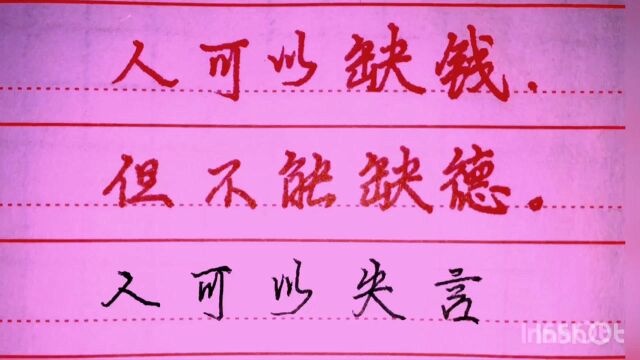 人可以缺钱.
但不能缺德。
人可以失言
InShOt